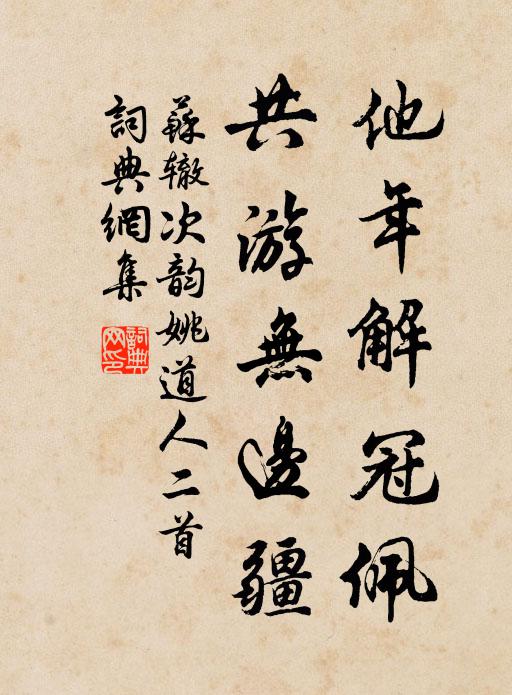 他年解冠佩
共游無邊疆
蘇辙次韵姚道人二首
詞典網集
詞典網印